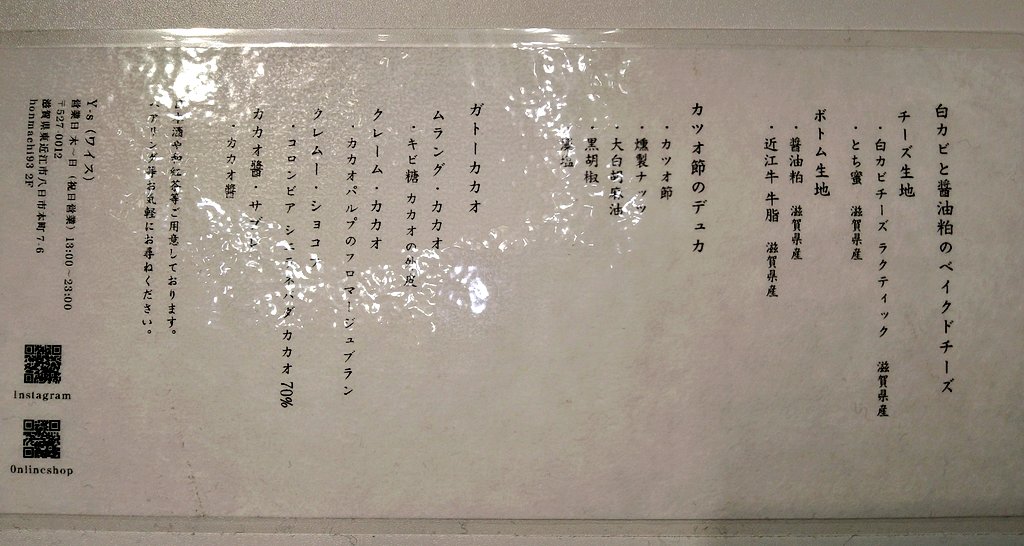 白カビと醤油粕のベイクドチーズ
チーズ生地
・白カビチーズ ラクティック 滋賀県産
・とち蜜 滋賀県産
ボトム生地
・醤油粕 滋賀県産
・近江牛 牛脂 滋賀県産
カツオ節のデュカ
・カツオ節
・燻製ナッツ
・大白胡麻油
・黒胡椒
・藻塩
ガトーカカオ
ムラング・カカオ
・キビ糖 カカオの外皮
クレーム・カカオ
・カカオパルプのフロマージュブラン
クレムー・ショコラ
・コロンビア シエラネバダ カカオ 70%
カカオ醬・サブレ
・カカオ醬
酒や和紅茶等ご用意しております。
アリング等お気軽にお尋ねください。
Y.s (ワイス)
営業日 木~日 (祝日営業) 13:00~23:00
〒527-0012
滋賀県東近江市八日市本町 7-6
honmachi93 2F
Instagram
Onlineshop